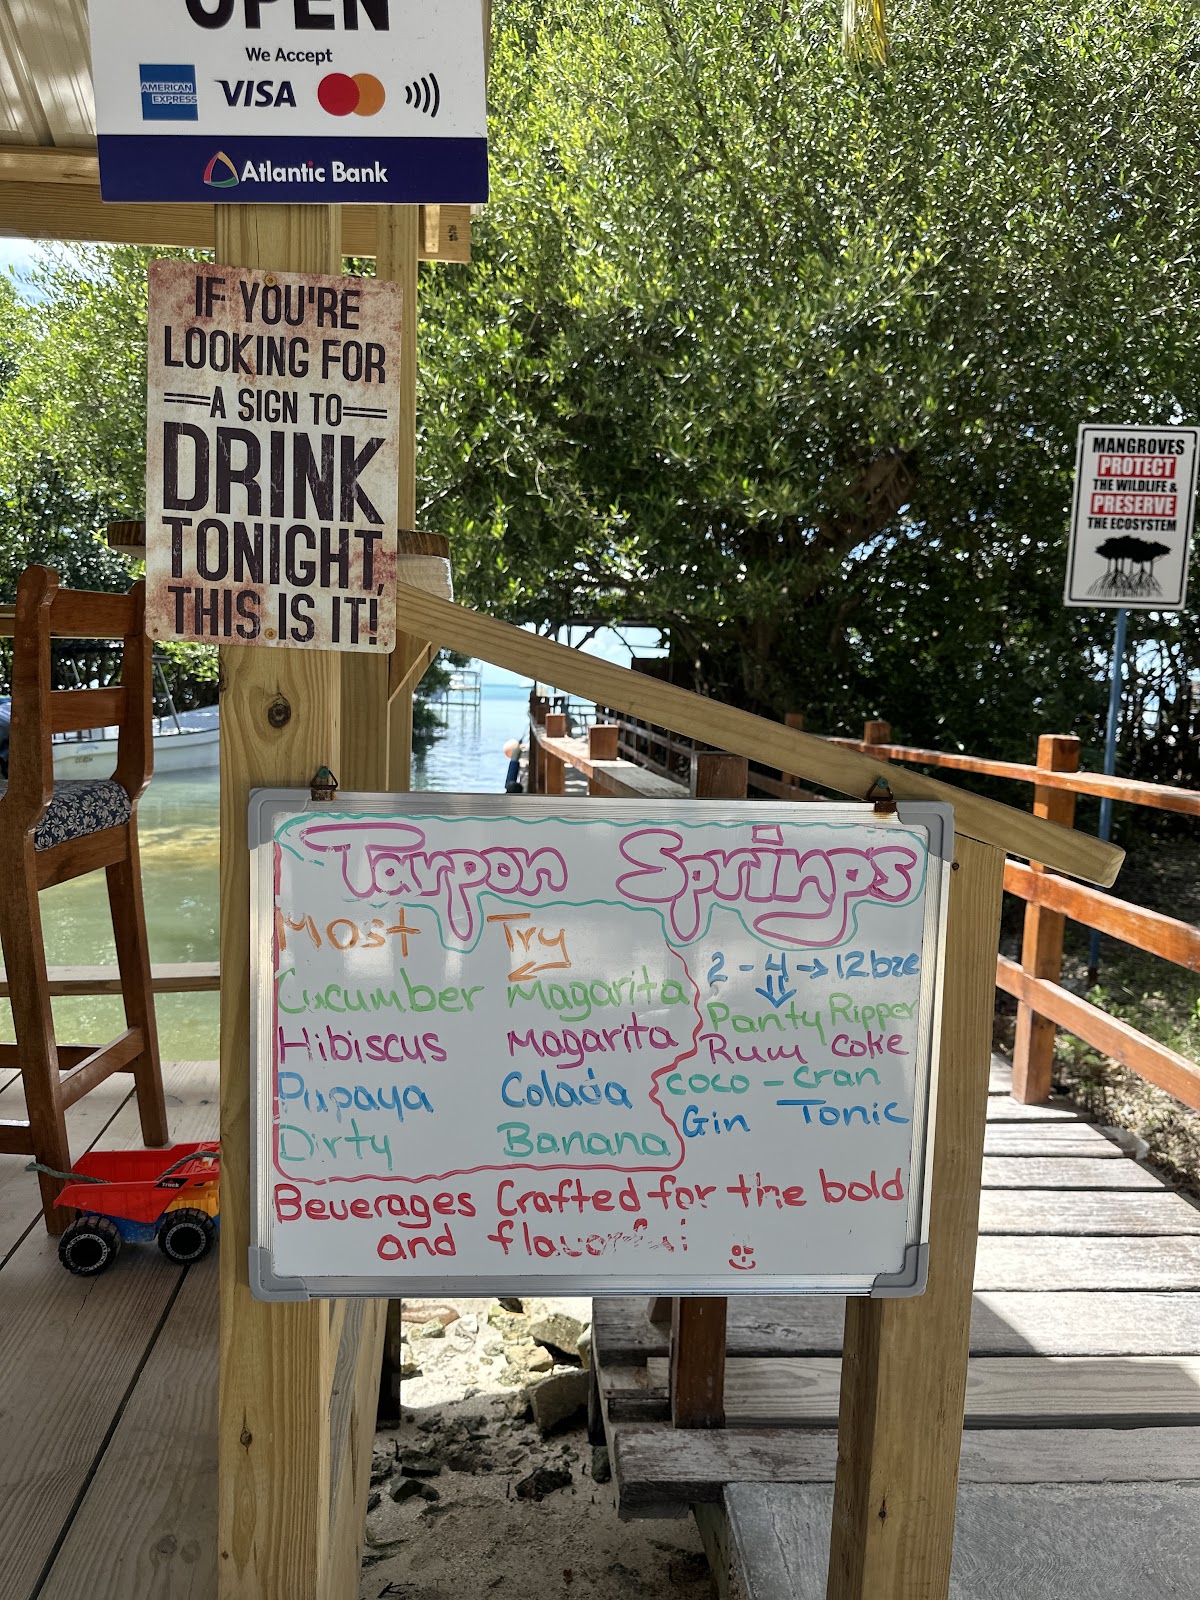 OPEN
We Accept
AMERICAN
EXPRESS
VISA
Atlantic Bank
IF YOU'RE
LOOKING FOR
A SIGN TO
DRINK
TONIGHT,
THIS IS IT!
MANGROVES
PROTECT
THE WILDLIFE &
PRESERVE
THE ECOSYSTEM
Tarpon Springs
Most Try
Cucumber Magarita
Hibiscus Magarita
Papaya Colada
Dirty Banana
2 - 4 → 12bze
Panty Ripper
Rum coke
coco - cran
Gin Tonic
Beverages Crafted for the bold
and flavorful
Truck